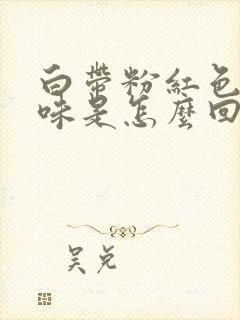 白带粉紅色
味是怎麼回
吴兑